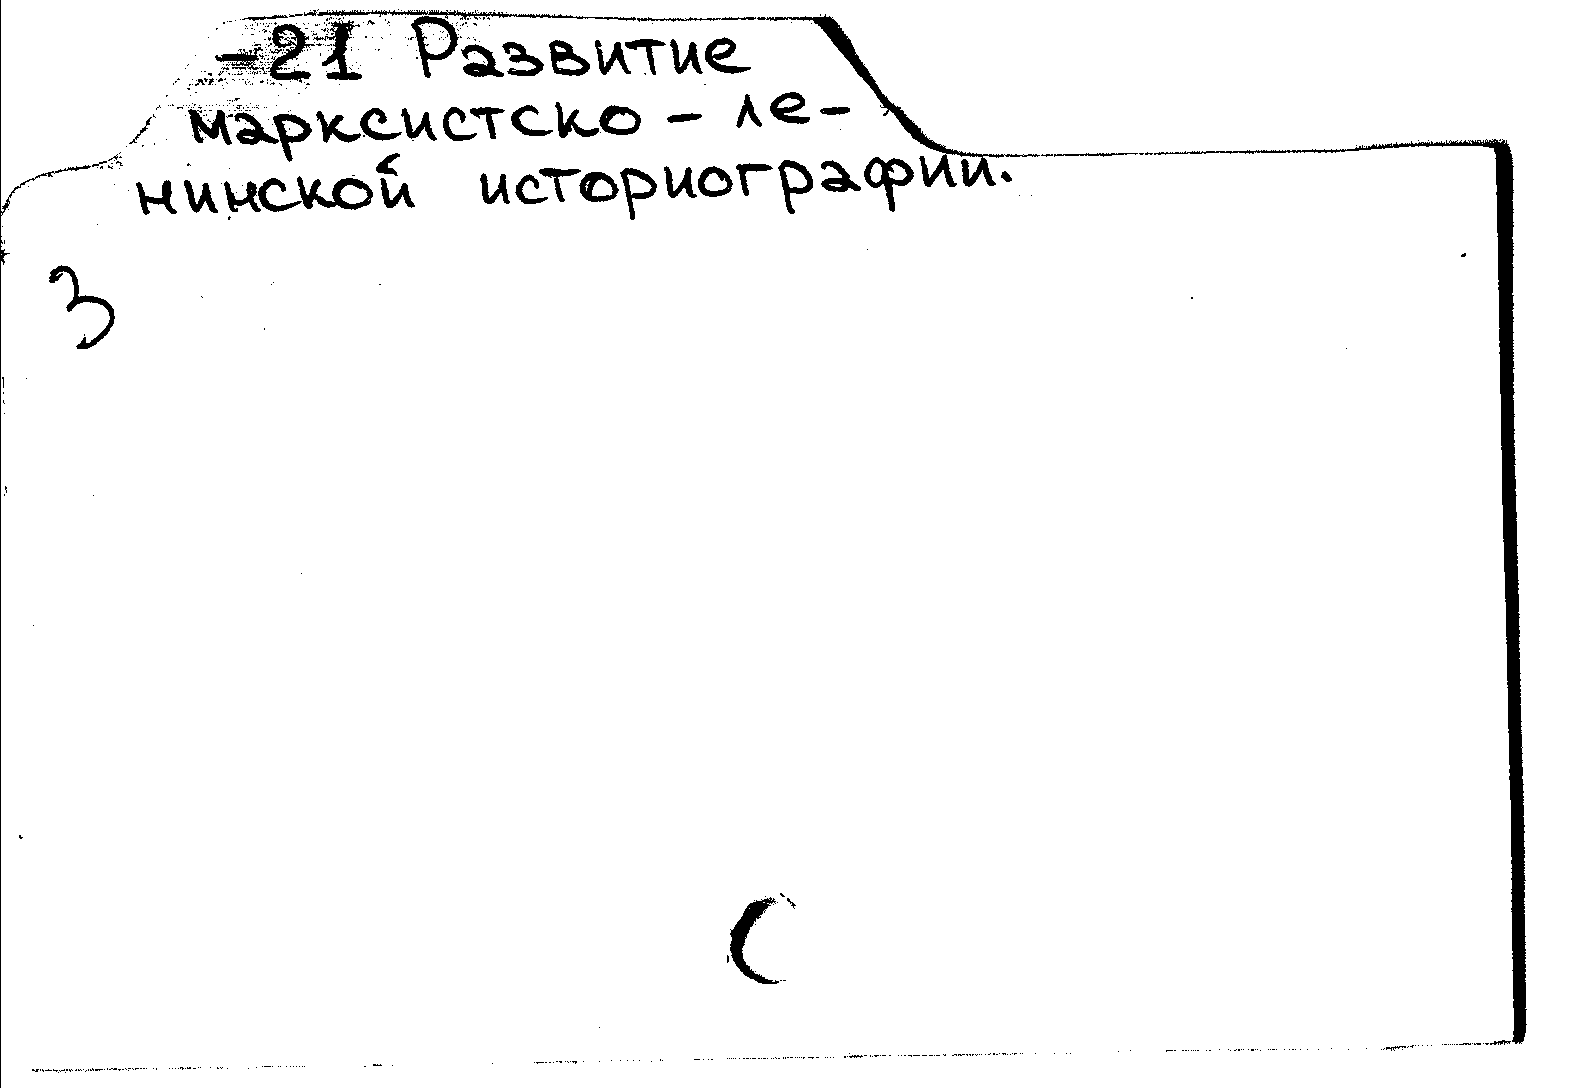 -21 Развитие
марксистско - ле-
нинской историографии.
3